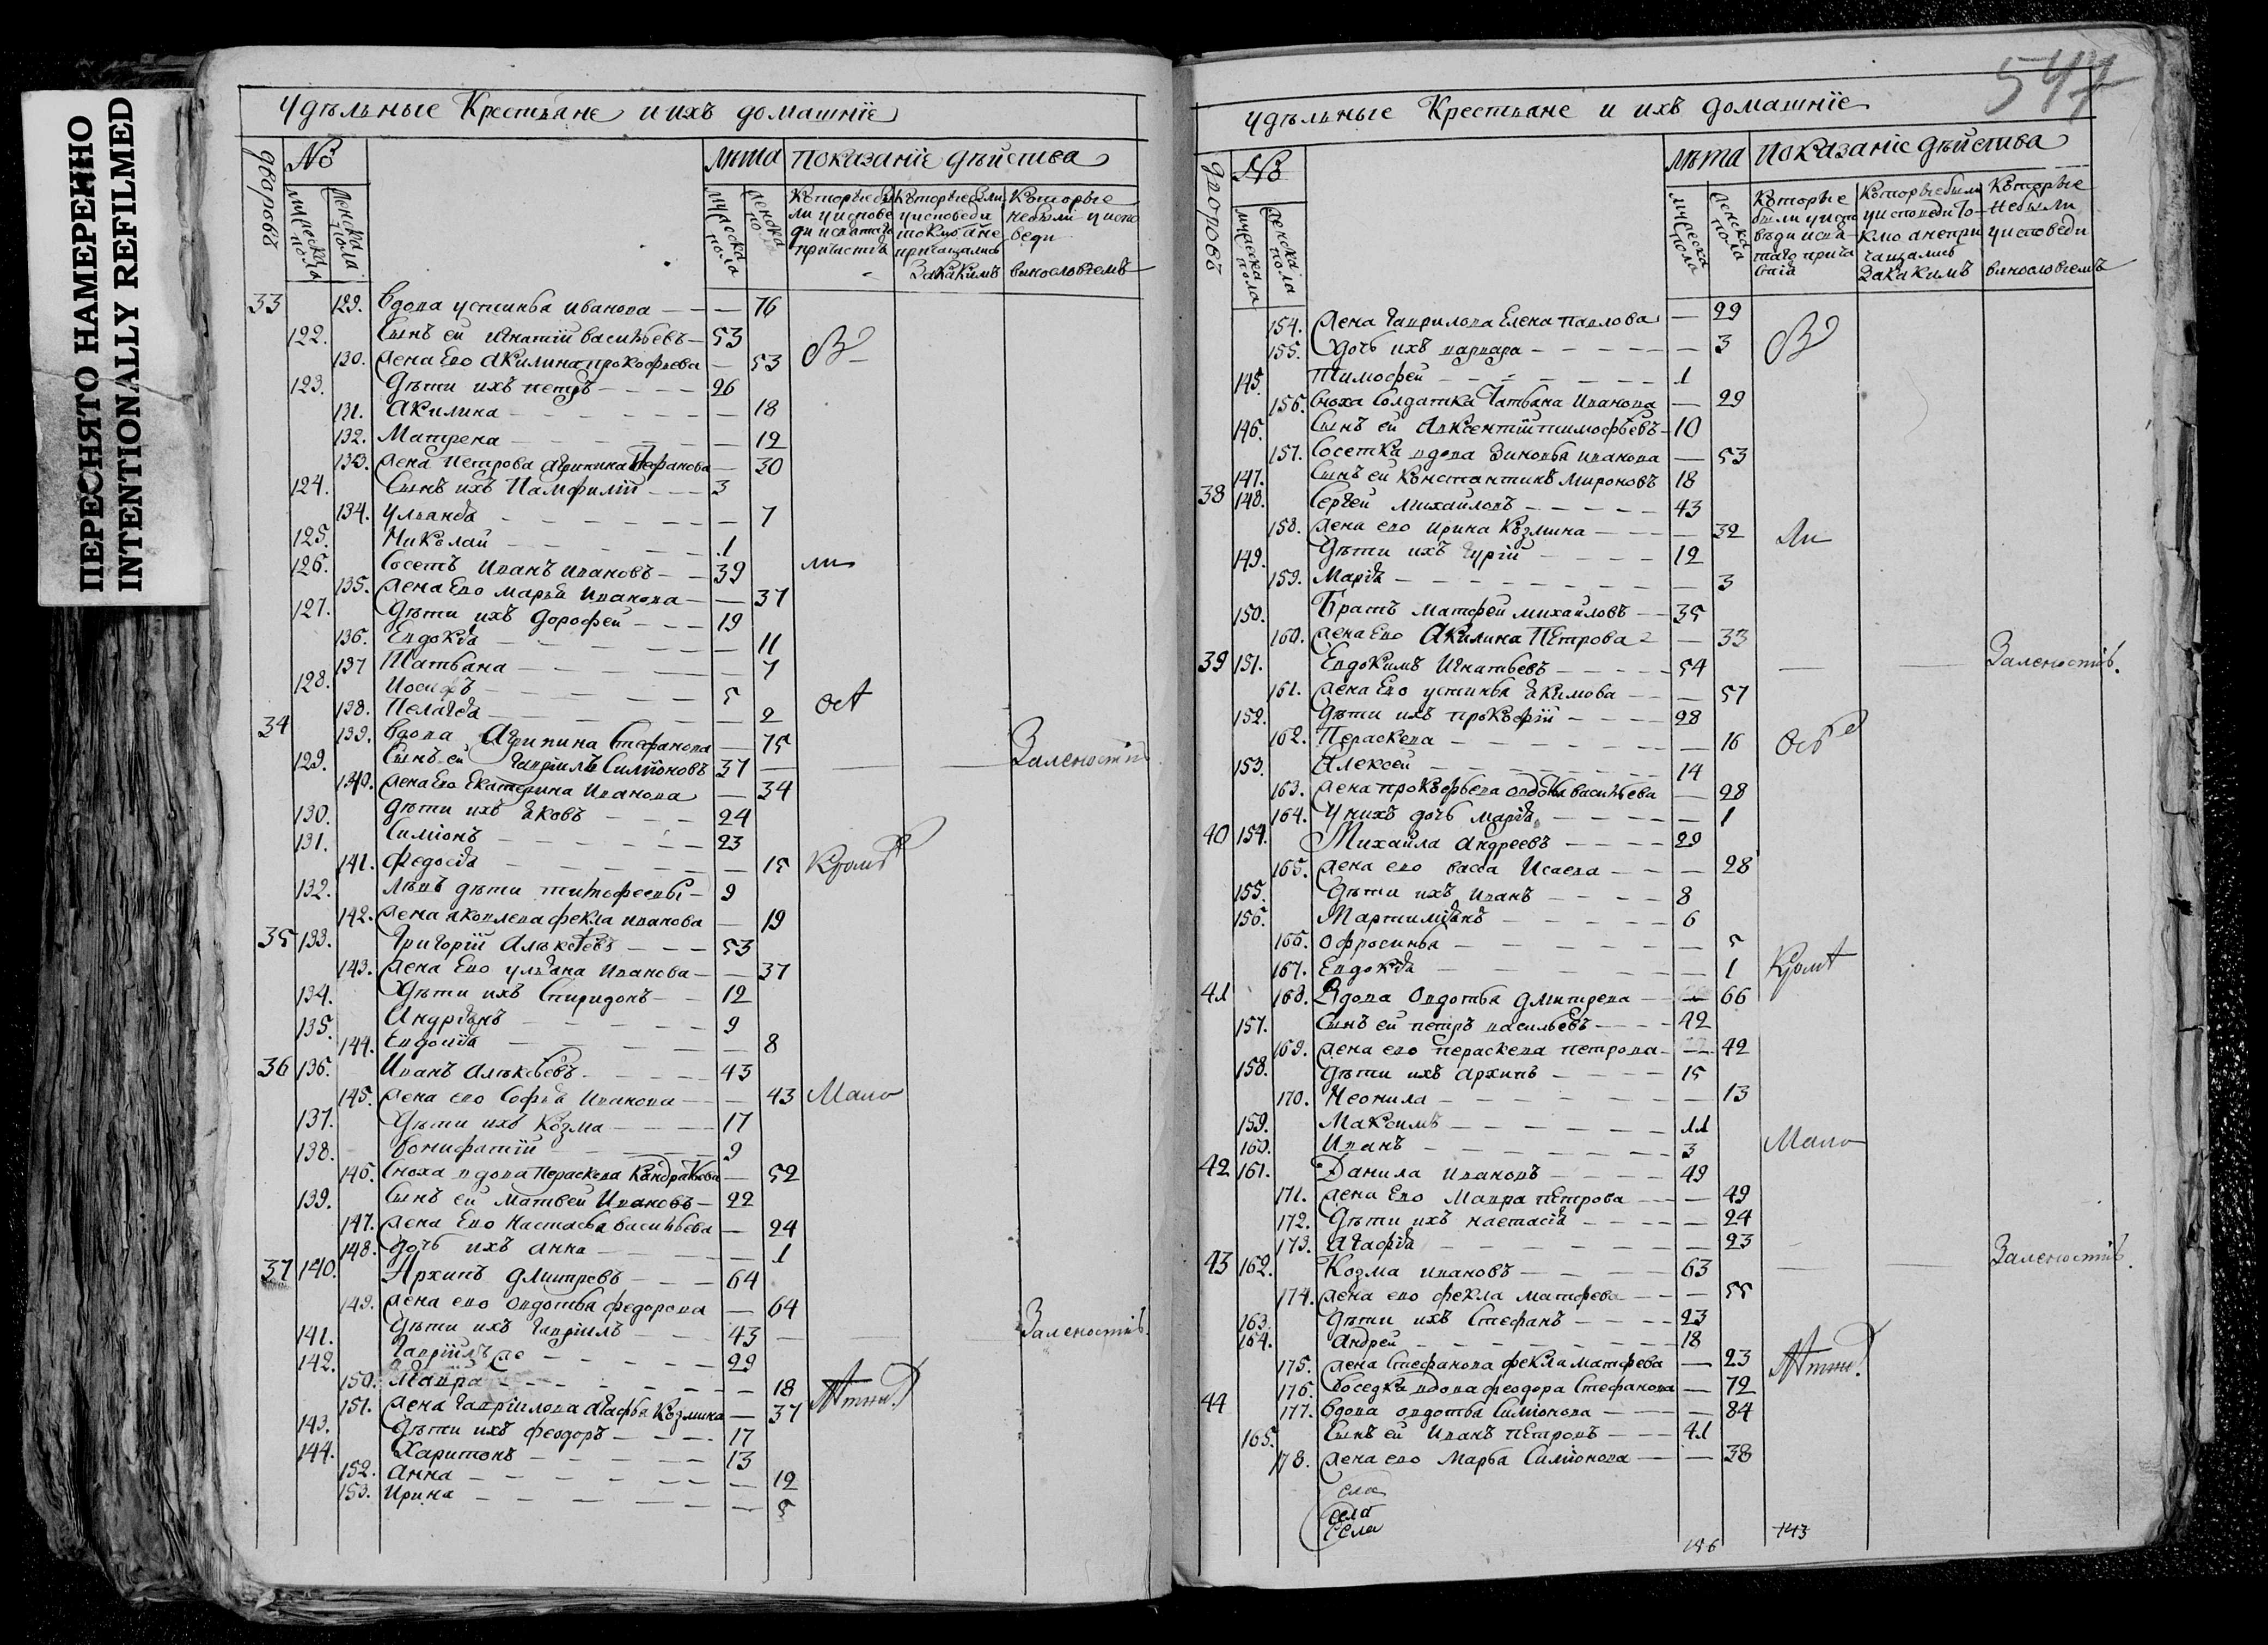 ПЕРЕСНЯТО НАМЕРЕННО
INTENTIONALLY REFILMED
Удѣльные Крестьяне и ихъ домашніе
дворовъ № лѣта показаніе дѣйства
мужеска пола женска пола мужеска пола женска по
Которые бы Которые были Которые
ли у исповѣ у исповеди небыли у испо
ди и святаго токмо а не веди
причастія причащались
За какимъ винословіемъ
33 129. Вдова устинья иванова — — 76
122. Сынъ ей игнатій васильевъ — 53
130. жена Ево акилина прокофьева — 53 В
123. Дѣти ихъ петръ — — — 26
131. Акилина — — — — — 18
132. Матрена — — — — — 12
133. жена петрова агрипина Стефанова — 30
124. Сынъ ихъ Памфилій — — 3
134. Ульянѣя — — — — — 7
125. Николай — — — — 1
126. Сосетъ Иванъ ивановъ — — 39 ли
135. жена Ево марья Иванова — — 37
127. Дѣти ихъ дорофей — — — 19
136. Евдокѣя — — — — — 11
137 Татьяна — — — — — 7
128. Иосифъ — — — — — 5
138. Пелагея — — — — — 2 ост
34 139. Вдова Агрипина Стефанова — 75
129. Сынъ ей Гавріилъ Симіоновъ 37 — — — За леностію
140. жена Ево Екатерина Иванова — 34
130. дѣти ихъ Яковъ — — — 24
131. Симіонъ — — — — — 23
141. Федосѣя — — — — — 15 Кромѣ
132. Левъ дѣти тимофеевы — 9
142. жена яковлева фекла иванова — 19
35 133. Григорій Алексѣевъ — — — 53
143. жена Ево ульяна Иванова — — 37
134. Дѣти ихъ Спиридонъ — — 12
135. Андріянъ — — — — 9
144. Евдокѣя — — — — — 8
36 136. Иванъ алексѣевъ — — — — 43
145. жена ево Софья Иванова — — 43 Мало
137. Дѣти ихъ Козма — — — 17
138. Вонифатій — — — — 9
146. Сноха вдова Пераскева Кандратьева — 52
139. Сынъ ей матвей Ивановъ — 22
147. жена Ево Настасья васильева — 24
148. дочь ихъ анна — — — — 1
37 140. Архипъ дмитревъ — — — 64
149. жена ево овдотья федорова — 64
141. Дѣти ихъ Гавріилъ — — 43 — — — За леностію.
142. Гавріилъ же — — — — — 29
150. Мавра — — — — — 18
151. жена Гавріилова агафья Козмина — 37
143. Дѣти ихъ феодоръ — — — 17
144. Харитонъ — — — — — 13
152. Анна — — — — — 12
153. Ирина — — — — — 5
547
Удѣльные Крестьяне и ихъ домашніе
дворовъ № лѣта показаніе дѣйства
мужеска пола женска пола мужеска пола женска пола
Которые Которые были Которые
были у испо у исповеди то- Небыли
вѣди и свя- кмо а непри у исповеди
таго прича чащались
стія За какимъ винословіемъ
154. жена Гаврилова Елена павлова — 29
155. Дочь ихъ варвара — — — — 3 В
145. Тимофей — — — — — 1
156. Сноха Солдатка Татьяна Иванова — 29
146. Сынъ ей Авксентій тимофѣевъ — 10
157. Сосетка вдова Зиновья иванова — 53
147. Сынъ ей Константинъ Мироновъ 18
38 148. Сергей михайловъ — — — — 43
158. жена ево ирина Козмина — — — 32 ли
149. Дѣти ихъ Гурій — — — — 12
159. Марія — — — — — — 3
150. Братъ матфей михайловъ — — 35
160. жена Ево Акилина Петрова — — 33
39 151. Евдокимъ Игнатьевъ — — — 54 — — За леностію.
161. жена Ево устинья Якимова — — 57
152. Дѣти ихъ прокофій — — — — 28
162. Пераскева — — — — — 16 Ост
153. Алексей — — — — — — 14
163. жена прокофьева овдотья васильева — 28
164. У нихъ дочь марія — — — — 1
40 154. Михайла андреевъ — — — — 29
165. жена ево васса Исаева — — — 28
155. Дѣти ихъ иванъ — — — — 8
156. Мартиміянъ — — — — — 6
166. Офросинья — — — — — — 5
167. Евдокѣя — — — — — — 1 Кромѣ
41 168. Вдова Овдотья дмитрева — — 66
157. Сынъ ей петръ васильевъ — — — 42
169. жена ево пераскева петрова — — 42
158. Дѣти ихъ архипъ — — — — 15
170. Неонила — — — — — — 13
159. Максимъ — — — — — 11
160. Иванъ — — — — — — 3 Мало
42 161. Данила ивановъ — — — — 49
171. жена Ево Мавра петрова — — — 49
172. Дѣти ихъ настасія — — — — 24
173. Агафія — — — — — — 23
43 162. Козма ивановъ — — — — 63 — — За леностію.
174. жена ево фекла матфева — — 55
163. Дѣти ихъ Стефанъ — — — — 23
164. Андрей — — — — — — 18
175. жена Стефанова фекла матфева — 23
176. Соседка вдова феодора Стефанова — 72
44 177. Вдова овдотья Симіонова — — — 84
165. Сынъ ей Иванъ петровъ — — — 41
178. жена ево Марья Симіонова — — 38
села
села
Села
186 143